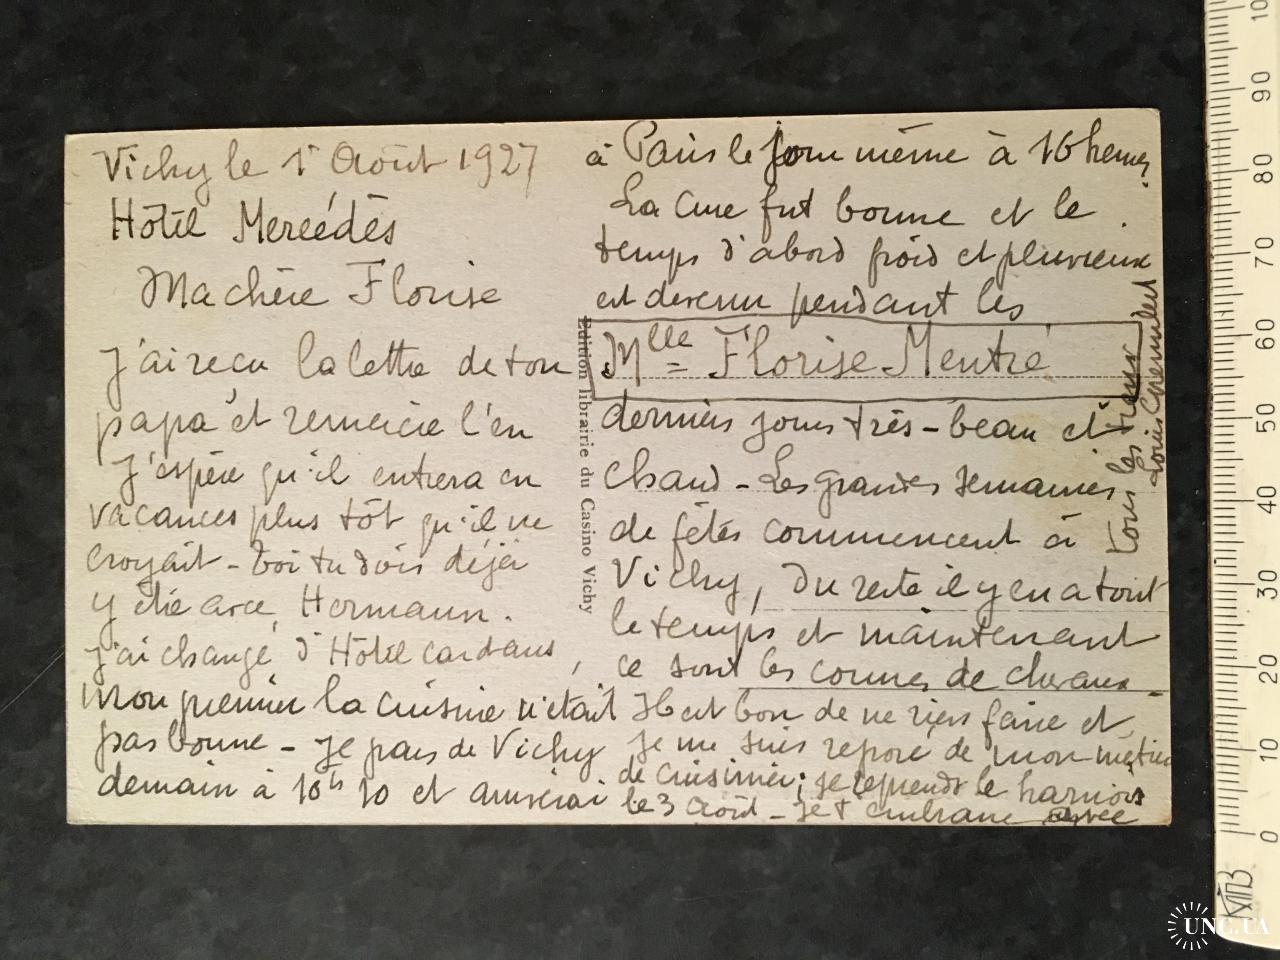 Vichy le 1r Août 1927
Hôtel Mercédès
Ma chère Florise
J'ai reçu la lettre de ton
papa et remercie l'en
J'espère qu'il entrera en
vacances plus tôt qu'il ne
croyait - Toi tu dois déjà
y être avec Hermann.
J'ai changé d'Hôtel car dans,
mon premier la cuisine n'était
pas bonne - Je pars de Vichy
demain à 10h 10 et arriverai
à Paris le jour même à 16 heures.
La Cure fut bonne et le
temps d'abord froid et pluvieux
est devenu pendant les
Mlle = Florise Mentré
derniers jours très-beau et
chaud - Les grandes semaines
de fêtes commencent à
Vichy, du reste il y en a tout
le temps et maintenant
ce sont les courses de chevaux -
Il est bon de ne rien faire et
je me suis reposé de mon métier
de cuisinier; je reprends le harnois
le 3 Août - Je t'embrasse avec
tous les tiens
Louis
Edition librairie du Casino Vichy
100
90
80
70
60
50
40
30
20
10
0
UNC.UA